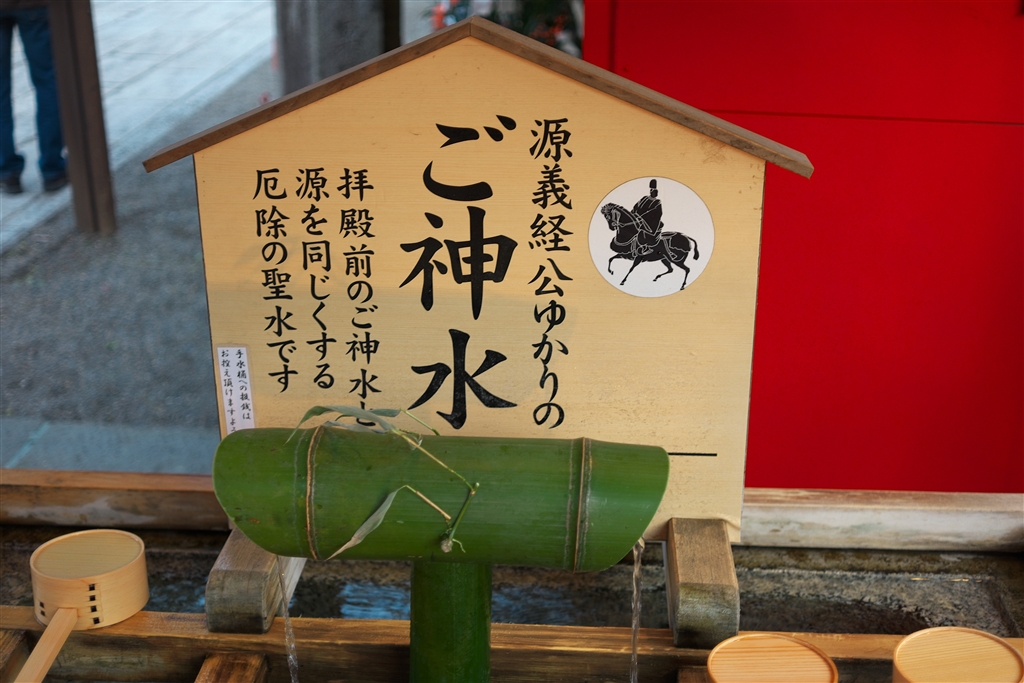 源義経公ゆかりの
ご神水
拝殿前のご神水と
源を同じくする
厄除の聖水です
手水桶への投銭は
お控え頂けますよう